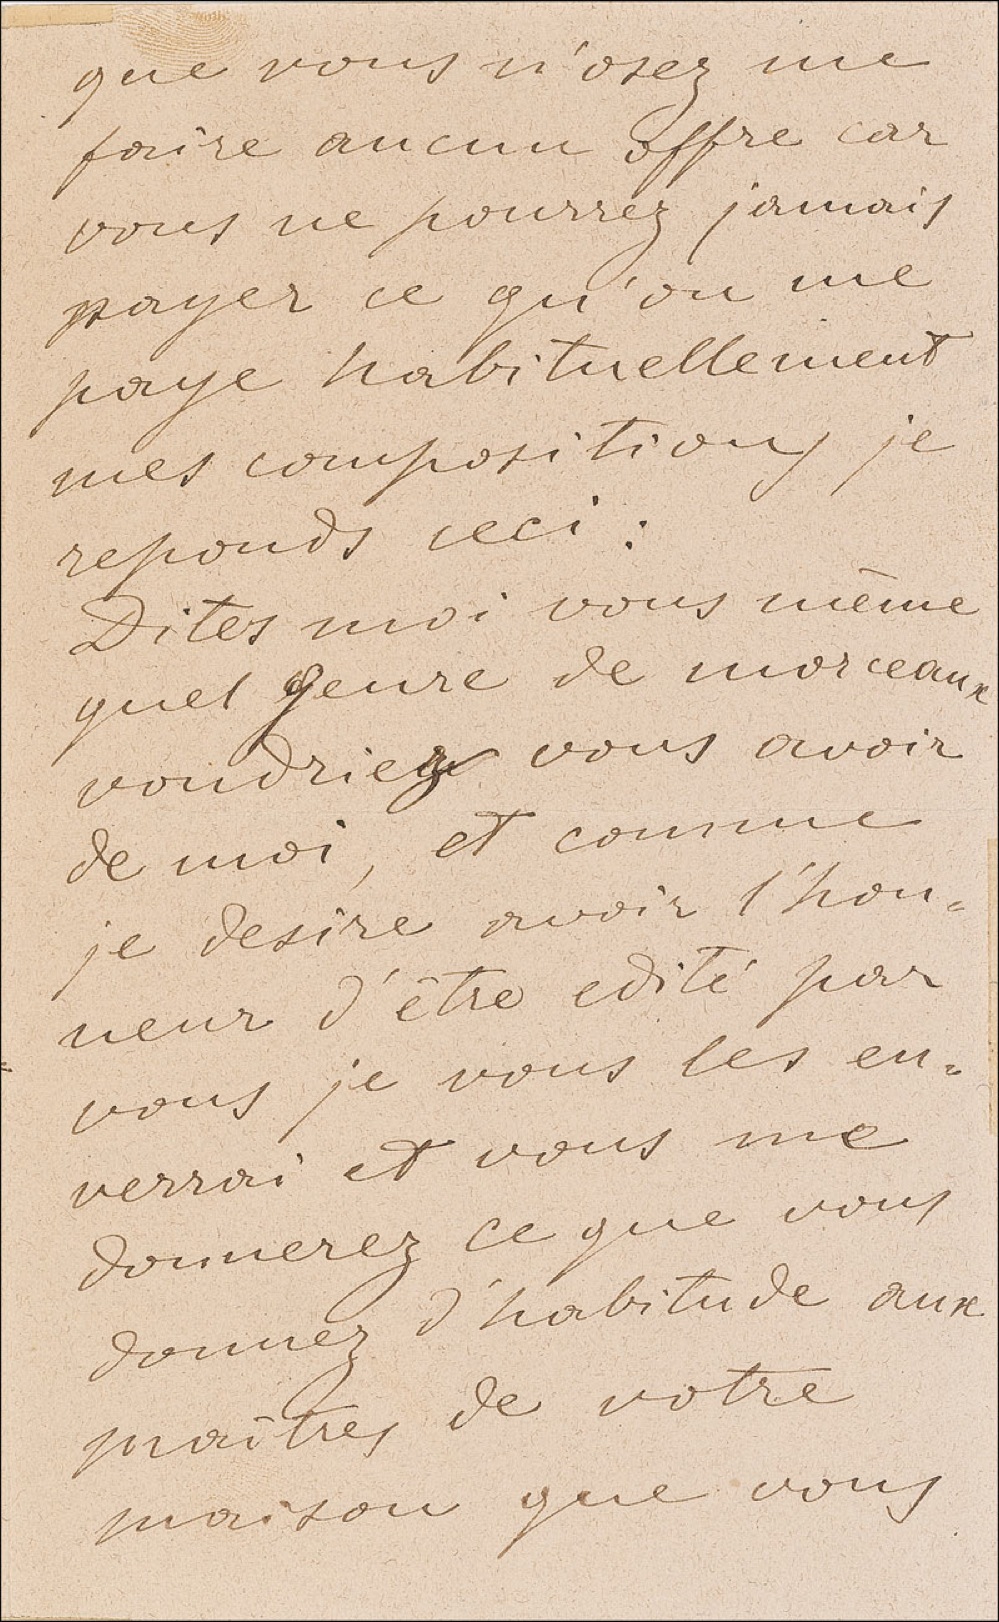 que vous n'osez me
faire aucun offre car
vous ne pourrez jamais
payer ce qu'on me
paye habituellement
mes compositions je
reponds ceci :
Dites moi vous même
quel genre de morceaux
voudriez vous avoir
de moi, et comme
je desire avoir l'hon=
neur d'être edité par
vous je vous les en=
verrai et vous me
donnerez ce que vous
donnez d'habitude aux
maîtres de votre
maison que vous